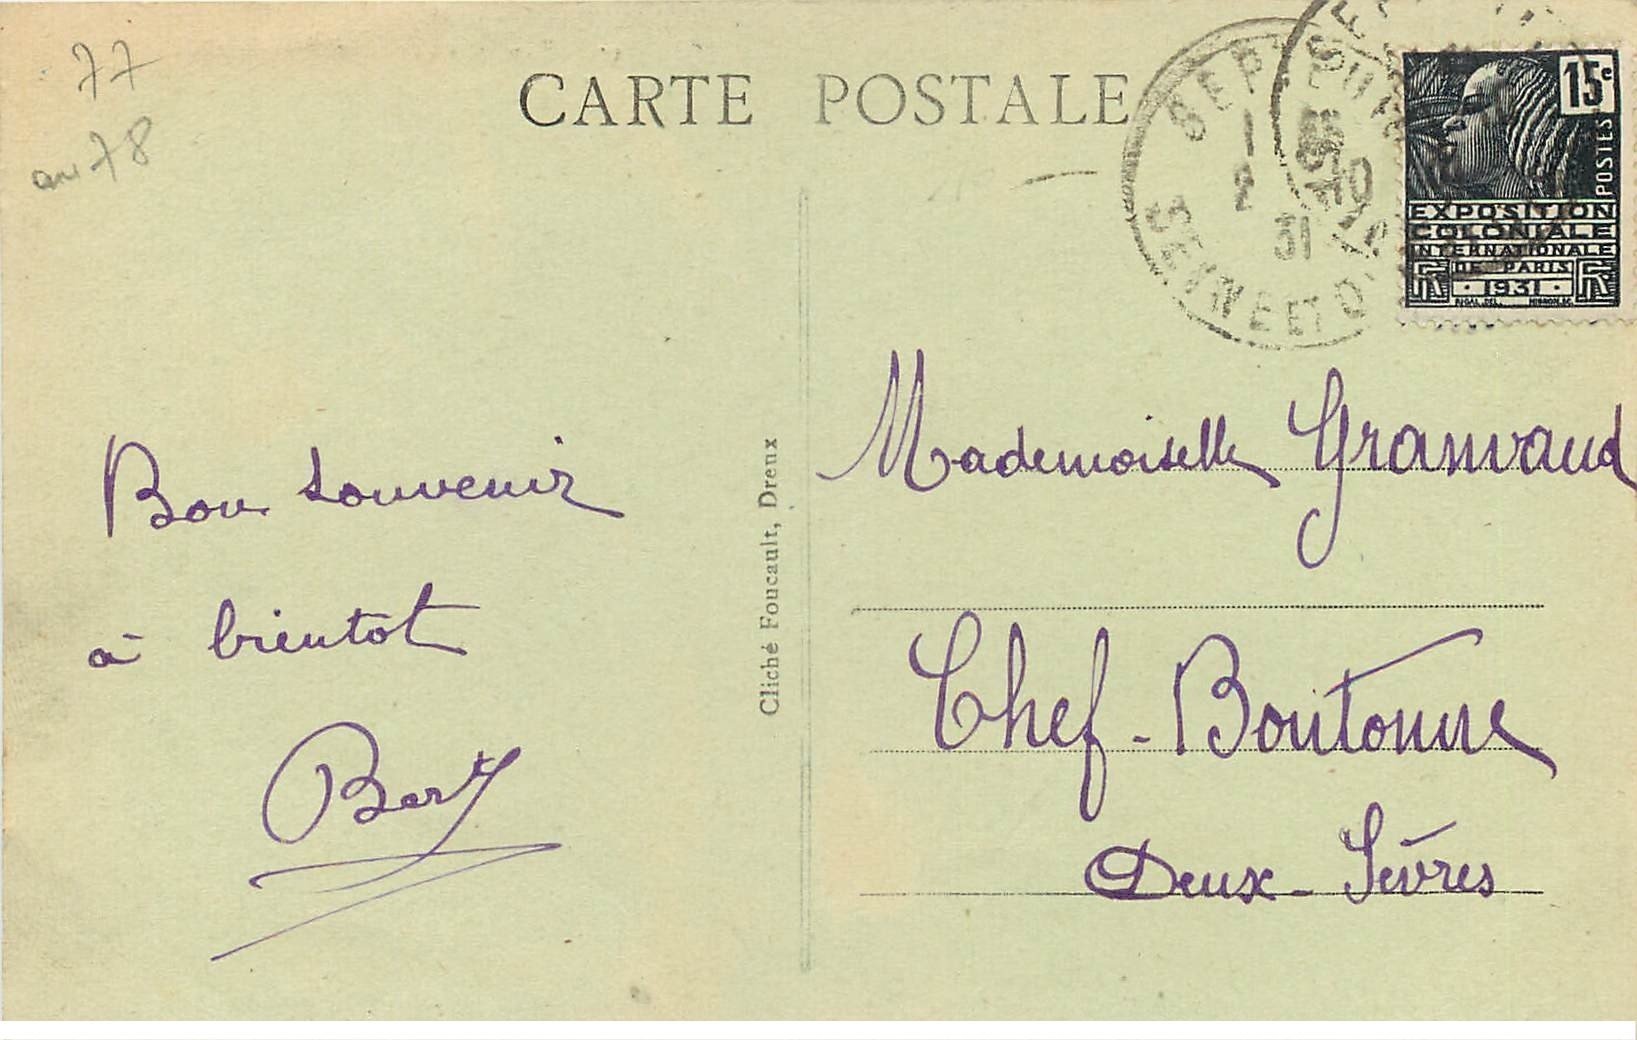 77
au 78
CARTE POSTALE
SEPTEUIL
1
2
31
SEINE ET O.
15c
POSTES
EXPOSITION
COLONIALE
INTERNATIONALE
DE PARIS
1931
Bon souvenir
à bientot
Bert
Cliché Foucault, Dreux
Mademoiselle Granvaud
Chef-Boutonne
Deux-Sèvres